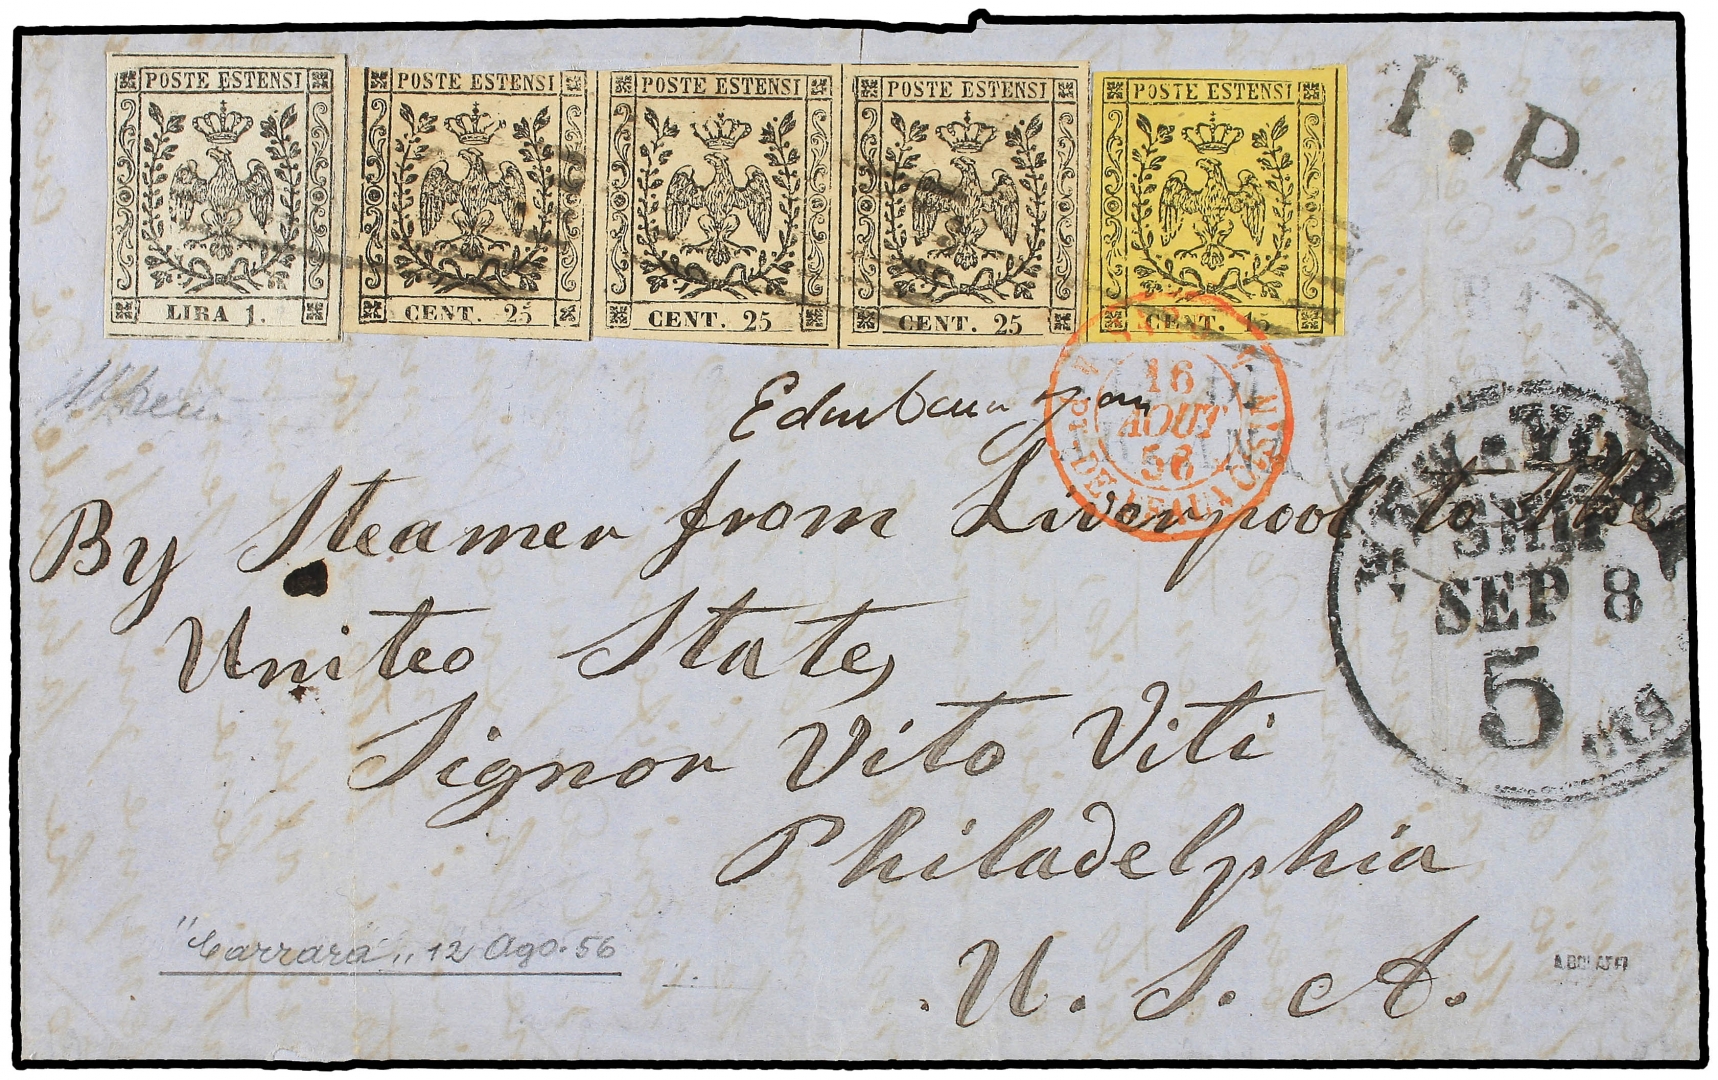 POSTE ESTENSI POSTE ESTENSI POSTE ESTENSI POSTE ESTENSI POSTE ESTENSI
LIRA 1. CENT. 25 CENT. 25 CENT. 25 CENT. 15
P. P.
16
AOUT
56
PT. DE BEAUVOISIN
NEW-YORK
SHIP
SEP 8
5
cts
By Steamer from Liverpool to the
United States
Signor Vito Viti
Philadelphia
U. S. A.
"Carrara" 12 Ago. 56
A. BOLAFFI